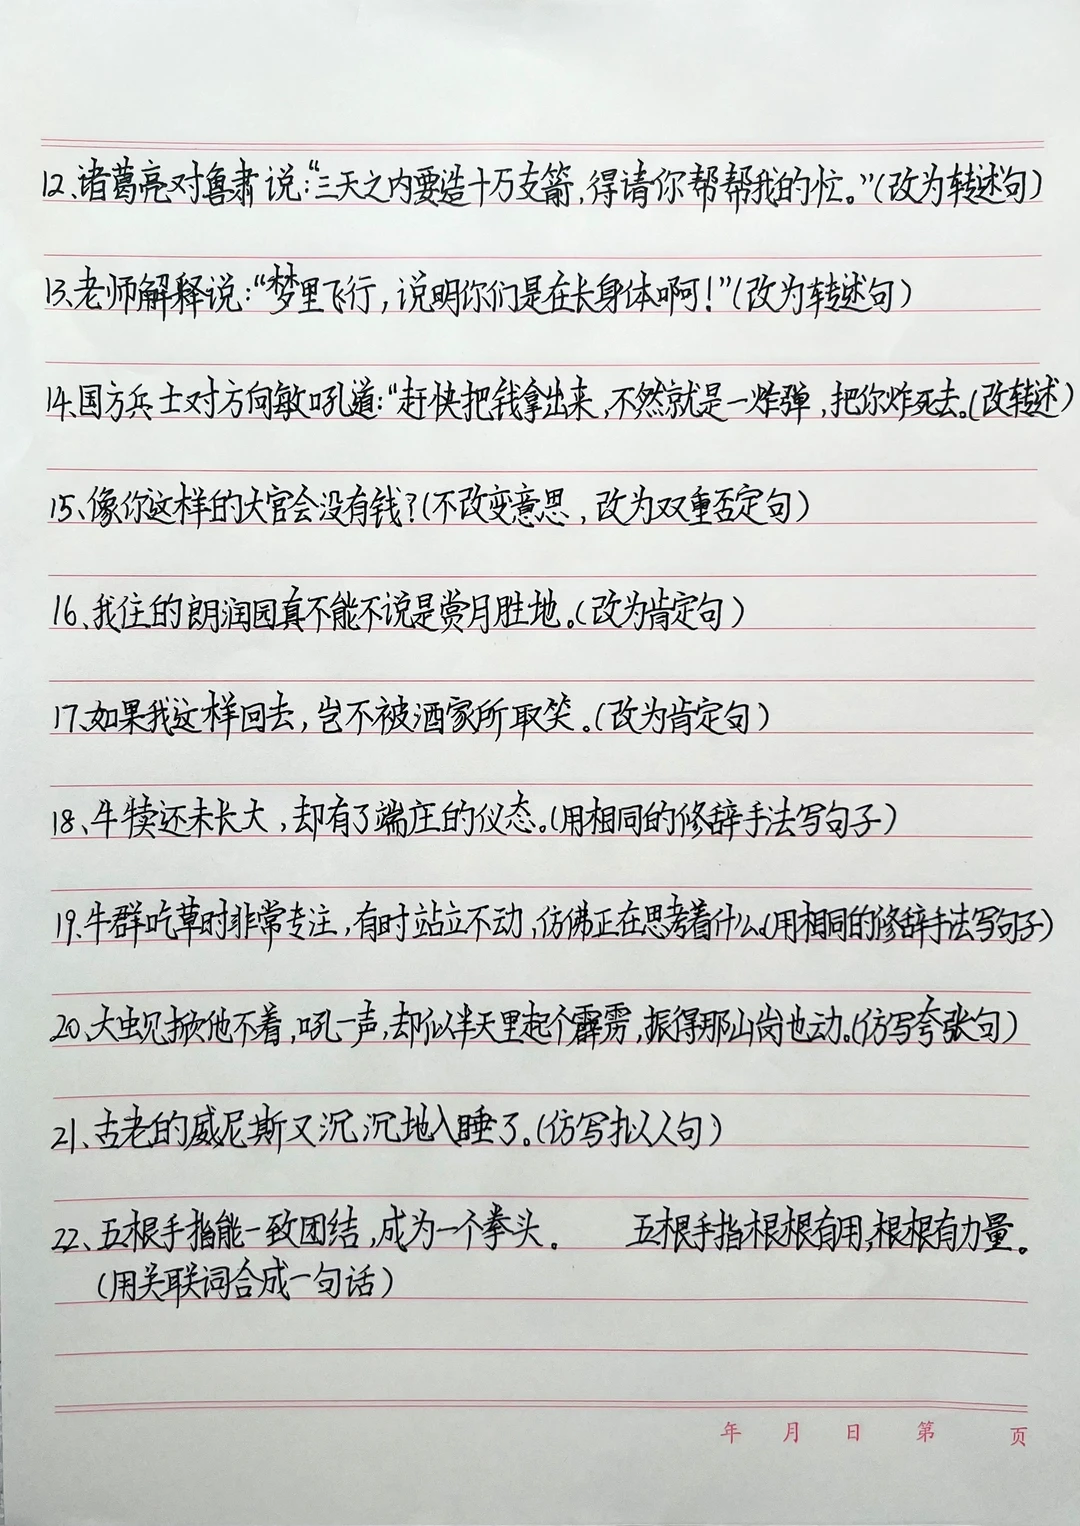 12、诸葛亮对鲁肃说:“三天之内要造十万支箭,得请你帮帮我的忙。”(改为转述句)
13、老师解释说:“梦里飞行,说明你们是在长身体啊!”(改为转述句)
14、国方兵士对方向敏吼道:“赶快把钱拿出来,不然就是一炸弹,把你炸死去。(改转述)
15、像你这样的大官会没有钱?(不改变意思,改为双重否定句)
16、我住的朗润园真不能不说是赏月胜地。(改为肯定句)
17、如果我这样回去,岂不被酒家所取笑。(改为肯定句)
18、牛犊还未长大,却有了端庄的仪态。(用相同的修辞手法写句子)
19、牛群吃草时非常专注,有时站立不动,仿佛正在思考着什么。(用相同的修辞手法写句子)
20、大虫见掀他不着,吼一声,却似半天里起个霹雳,振得那山岗也动。(仿写夸张句)
21、古老的威尼斯又沉沉地入睡了。(仿写拟人句)
22、五根手指能一致团结,成为一个拳头。 五根手指根根有用,根根有力量。
(用关联词合成一句话)
年 月 日 第 页